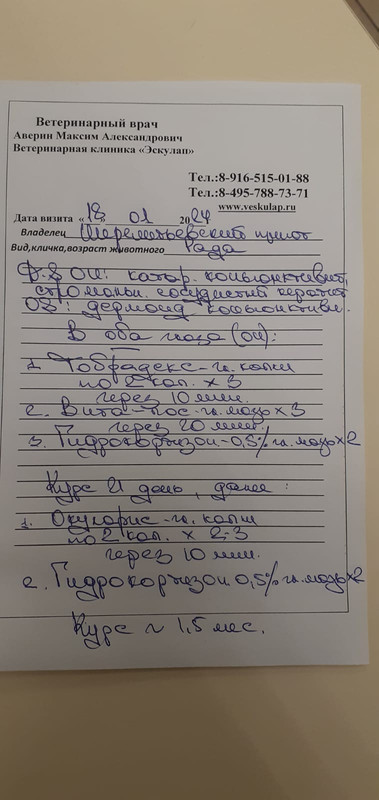 Ветеринарный врач
Аверин Максим Александрович
Ветеринарная клиника «Эскулап»
Тел.:8-916-515-01-88
Тел.:8-495-788-73-71
www.veskulap.ru
Дата визита «18 01 2024
Владелец Шереметьевский приют
Вид,кличка,возраст животного Рада
D.S OU: катар. конъюнктивит,
стромальн. сосудистый кератит
OS: дермоид конъюнктивы.
В оба глаза (OU):
1. Тобрадекс-гл. капли
по 2 кап. х 3
через 10 мин.
2. Вита-пос-гл. мазь х 3
через 20 мин.
3. Гидрокортизон-0,5% гл. мазь х 2
Курс 21 день, далее:
1. Окутарис-гл. капли
по 2 кап. х 2-3
через 10 мин.
2. Гидрокортизон 0,5% гл. мазь х 2
Курс ~ 1,5 мес.